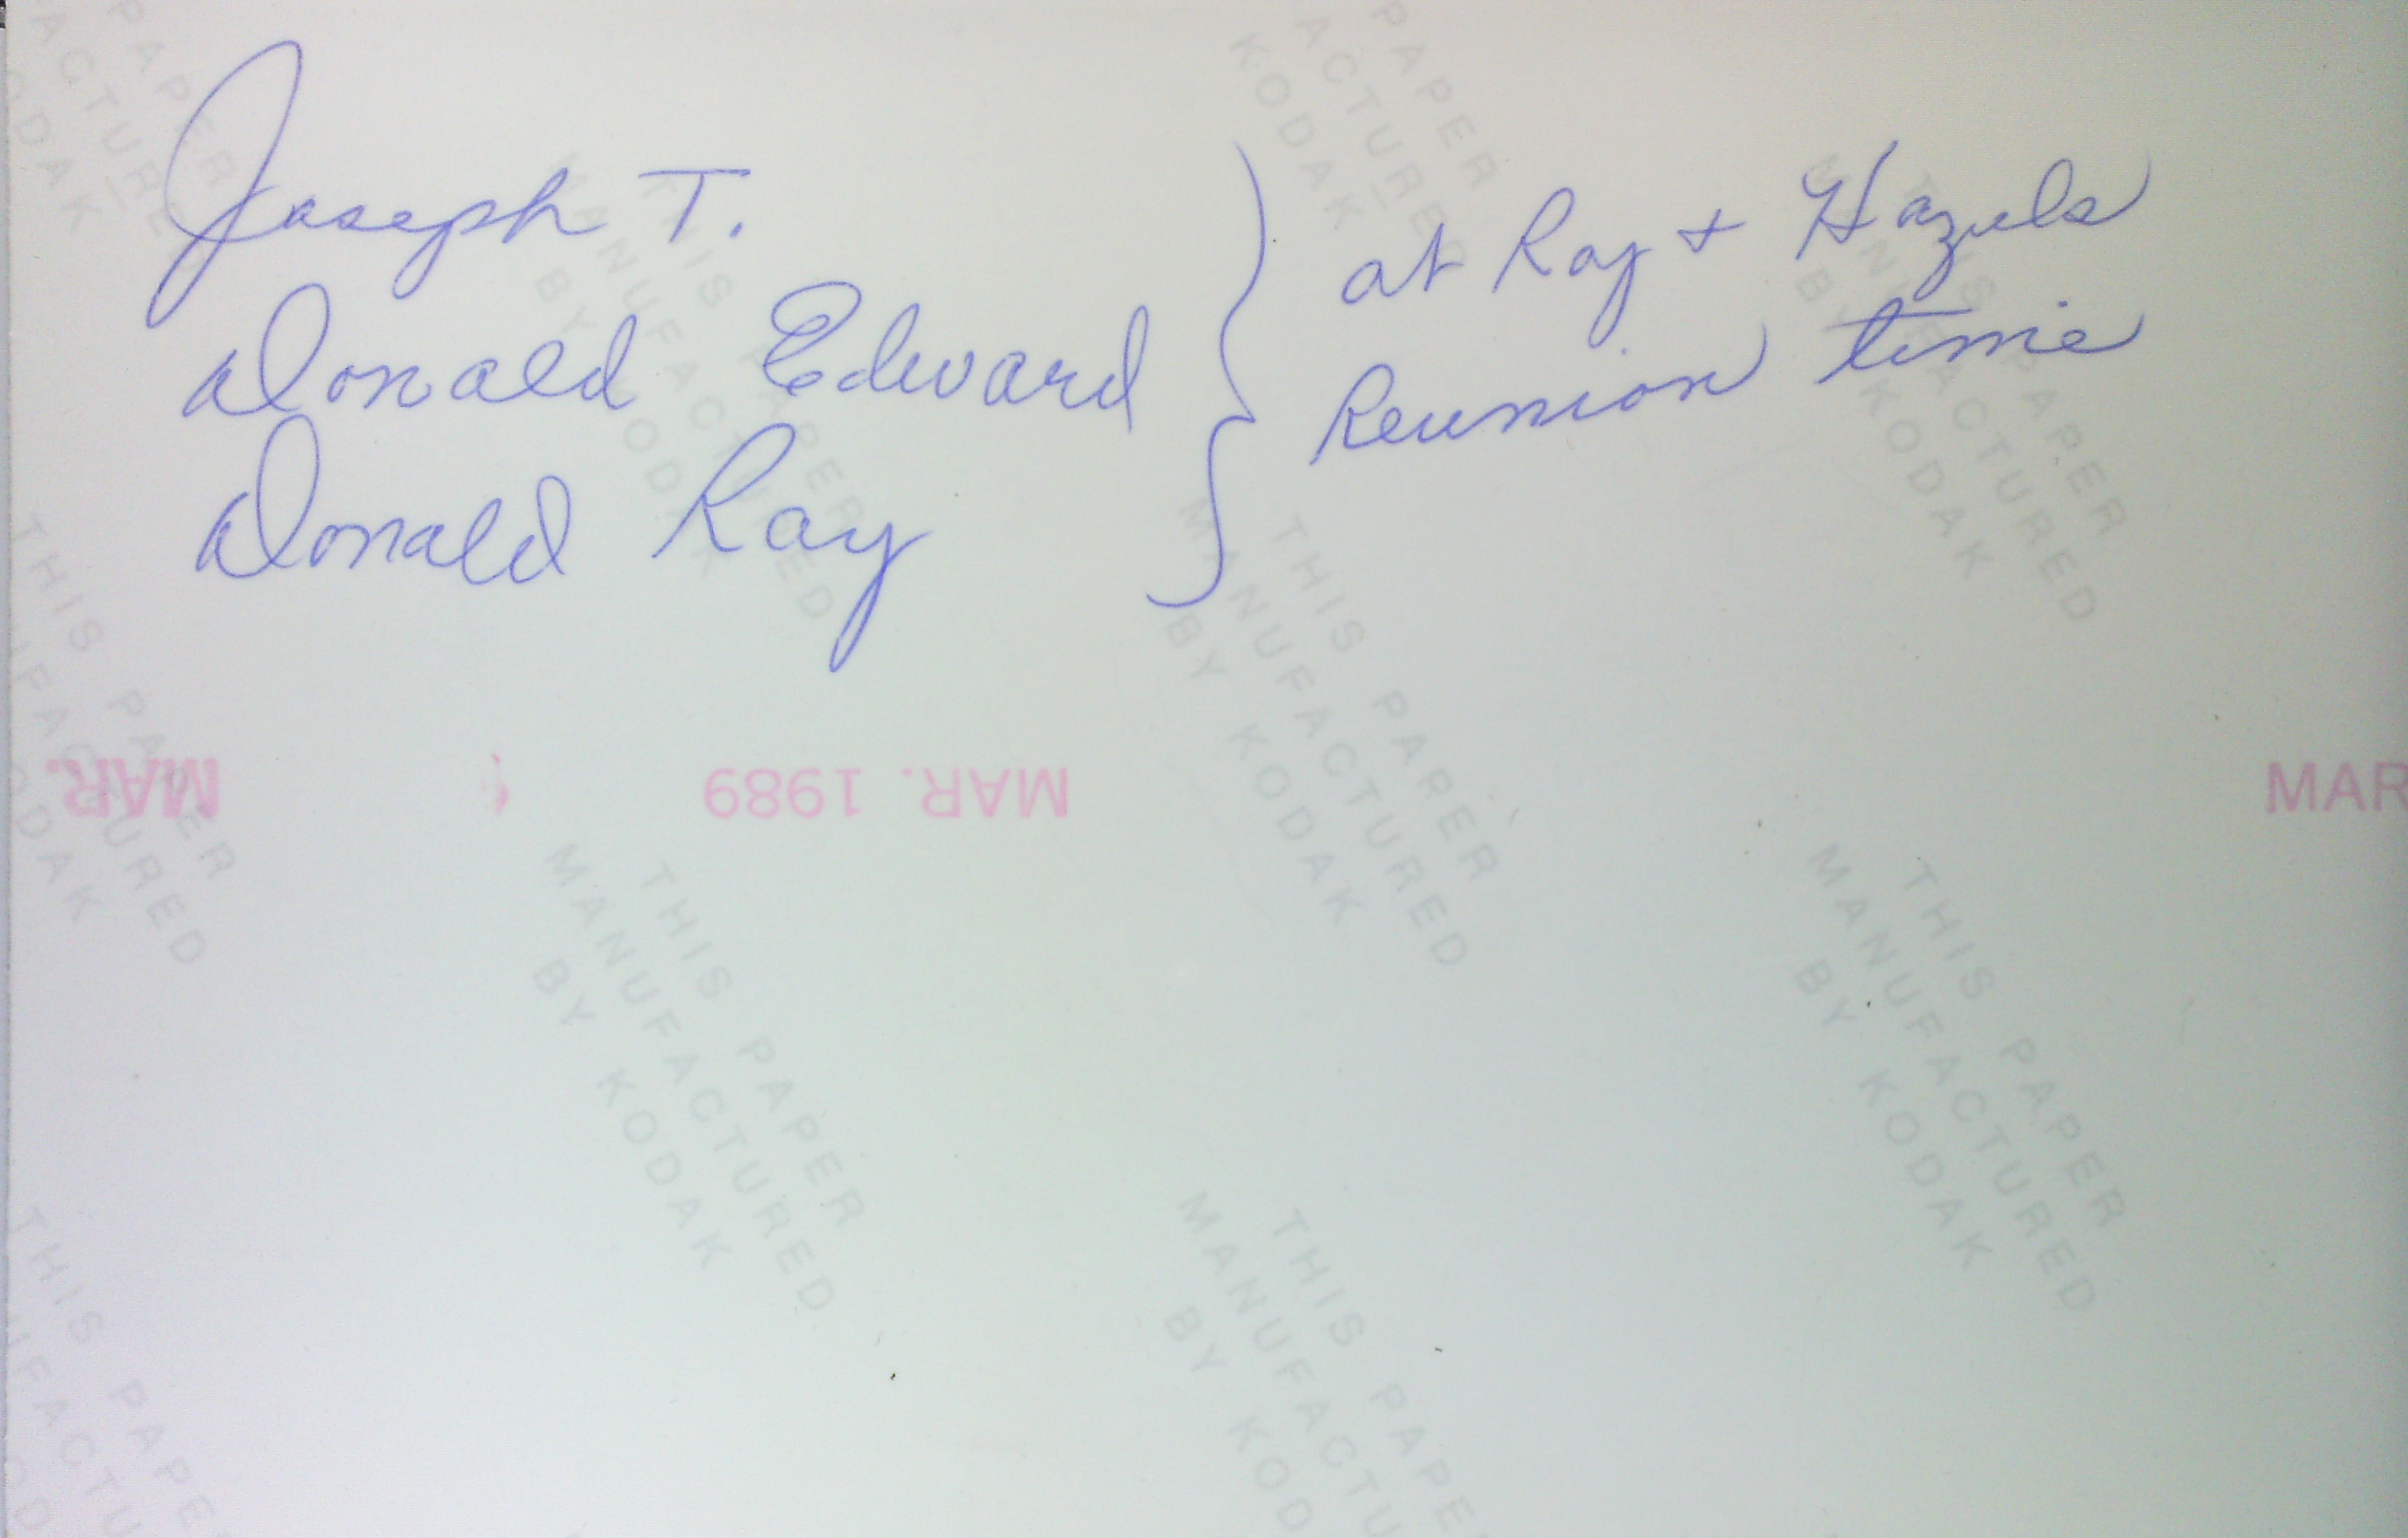 Joseph T.
Donald Edward
Donald Ray
at Ray + Hazels
Reunion time
MAR.
MAR. 1989
MAR
THIS PAPER
MANUFACTURED
BY KODAK